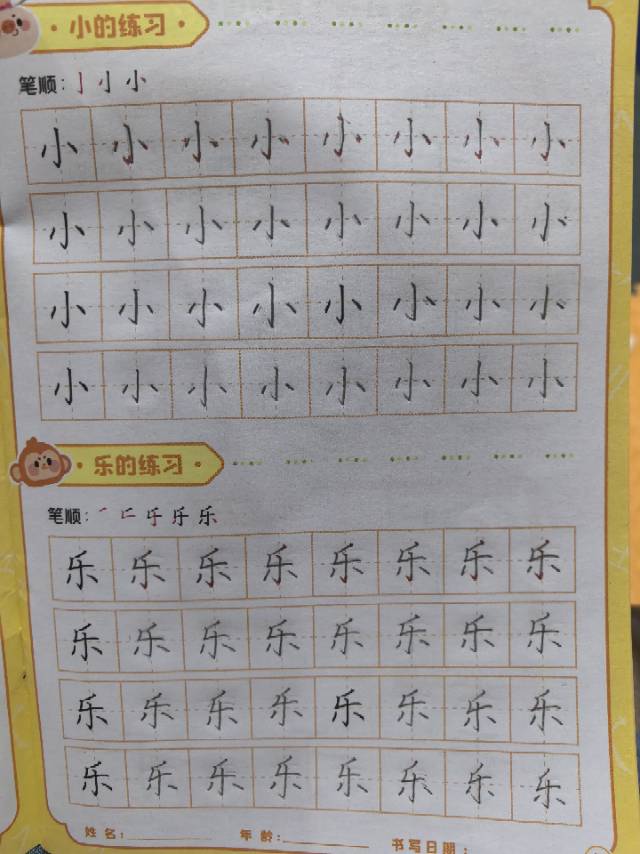 小的练习
笔顺：亅 小 小
小 小 小 小 小 小 小 小
小 小 小 小 小 小 小 小
小 小 小 小 小 小 小 小
小 小 小 小 小 小 小 小
乐的练习
笔顺：乐
乐 乐 乐 乐 乐 乐 乐 乐
乐 乐 乐 乐 乐 乐 乐 乐
乐 乐 乐 乐 乐 乐 乐 乐
乐 乐 乐 乐 乐 乐 乐 乐
姓名： 年龄： 书写日期：